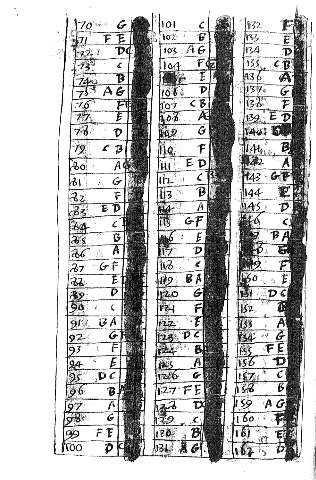 70 G 101 C 132 F
71 F E 102 B 133 E
72 D C 103 A G 134 D
73 C 104 F 135 C B
74 B E 136 A
75 A G 106 D 137 G
76 F 107 C B 138 F
77 E 108 A 139 E D
78 D 109 G
79 C B 110 F B
80 A G 111 E D A
81 G 112 C 143 G F
82 F 113 B 144 E
83 E D A 145 D
84 C G F C
85 B E B A
86 A 117 D
87 G F 118 C F
88 E 119 B A E
89 D 120 G D C
90 C 121 F 152 B
91 B A 122 E 153 A
92 G 123 D C 154 G
93 F B 155 F E
94 E 125 A 156 D
95 D C 126 G 157 C
96 B 127 F E 158 B
97 A 128 D 159 A G
98 G 129 C 160 F
99 F E 130 B 161 E
100 D C 131 A G 162 D